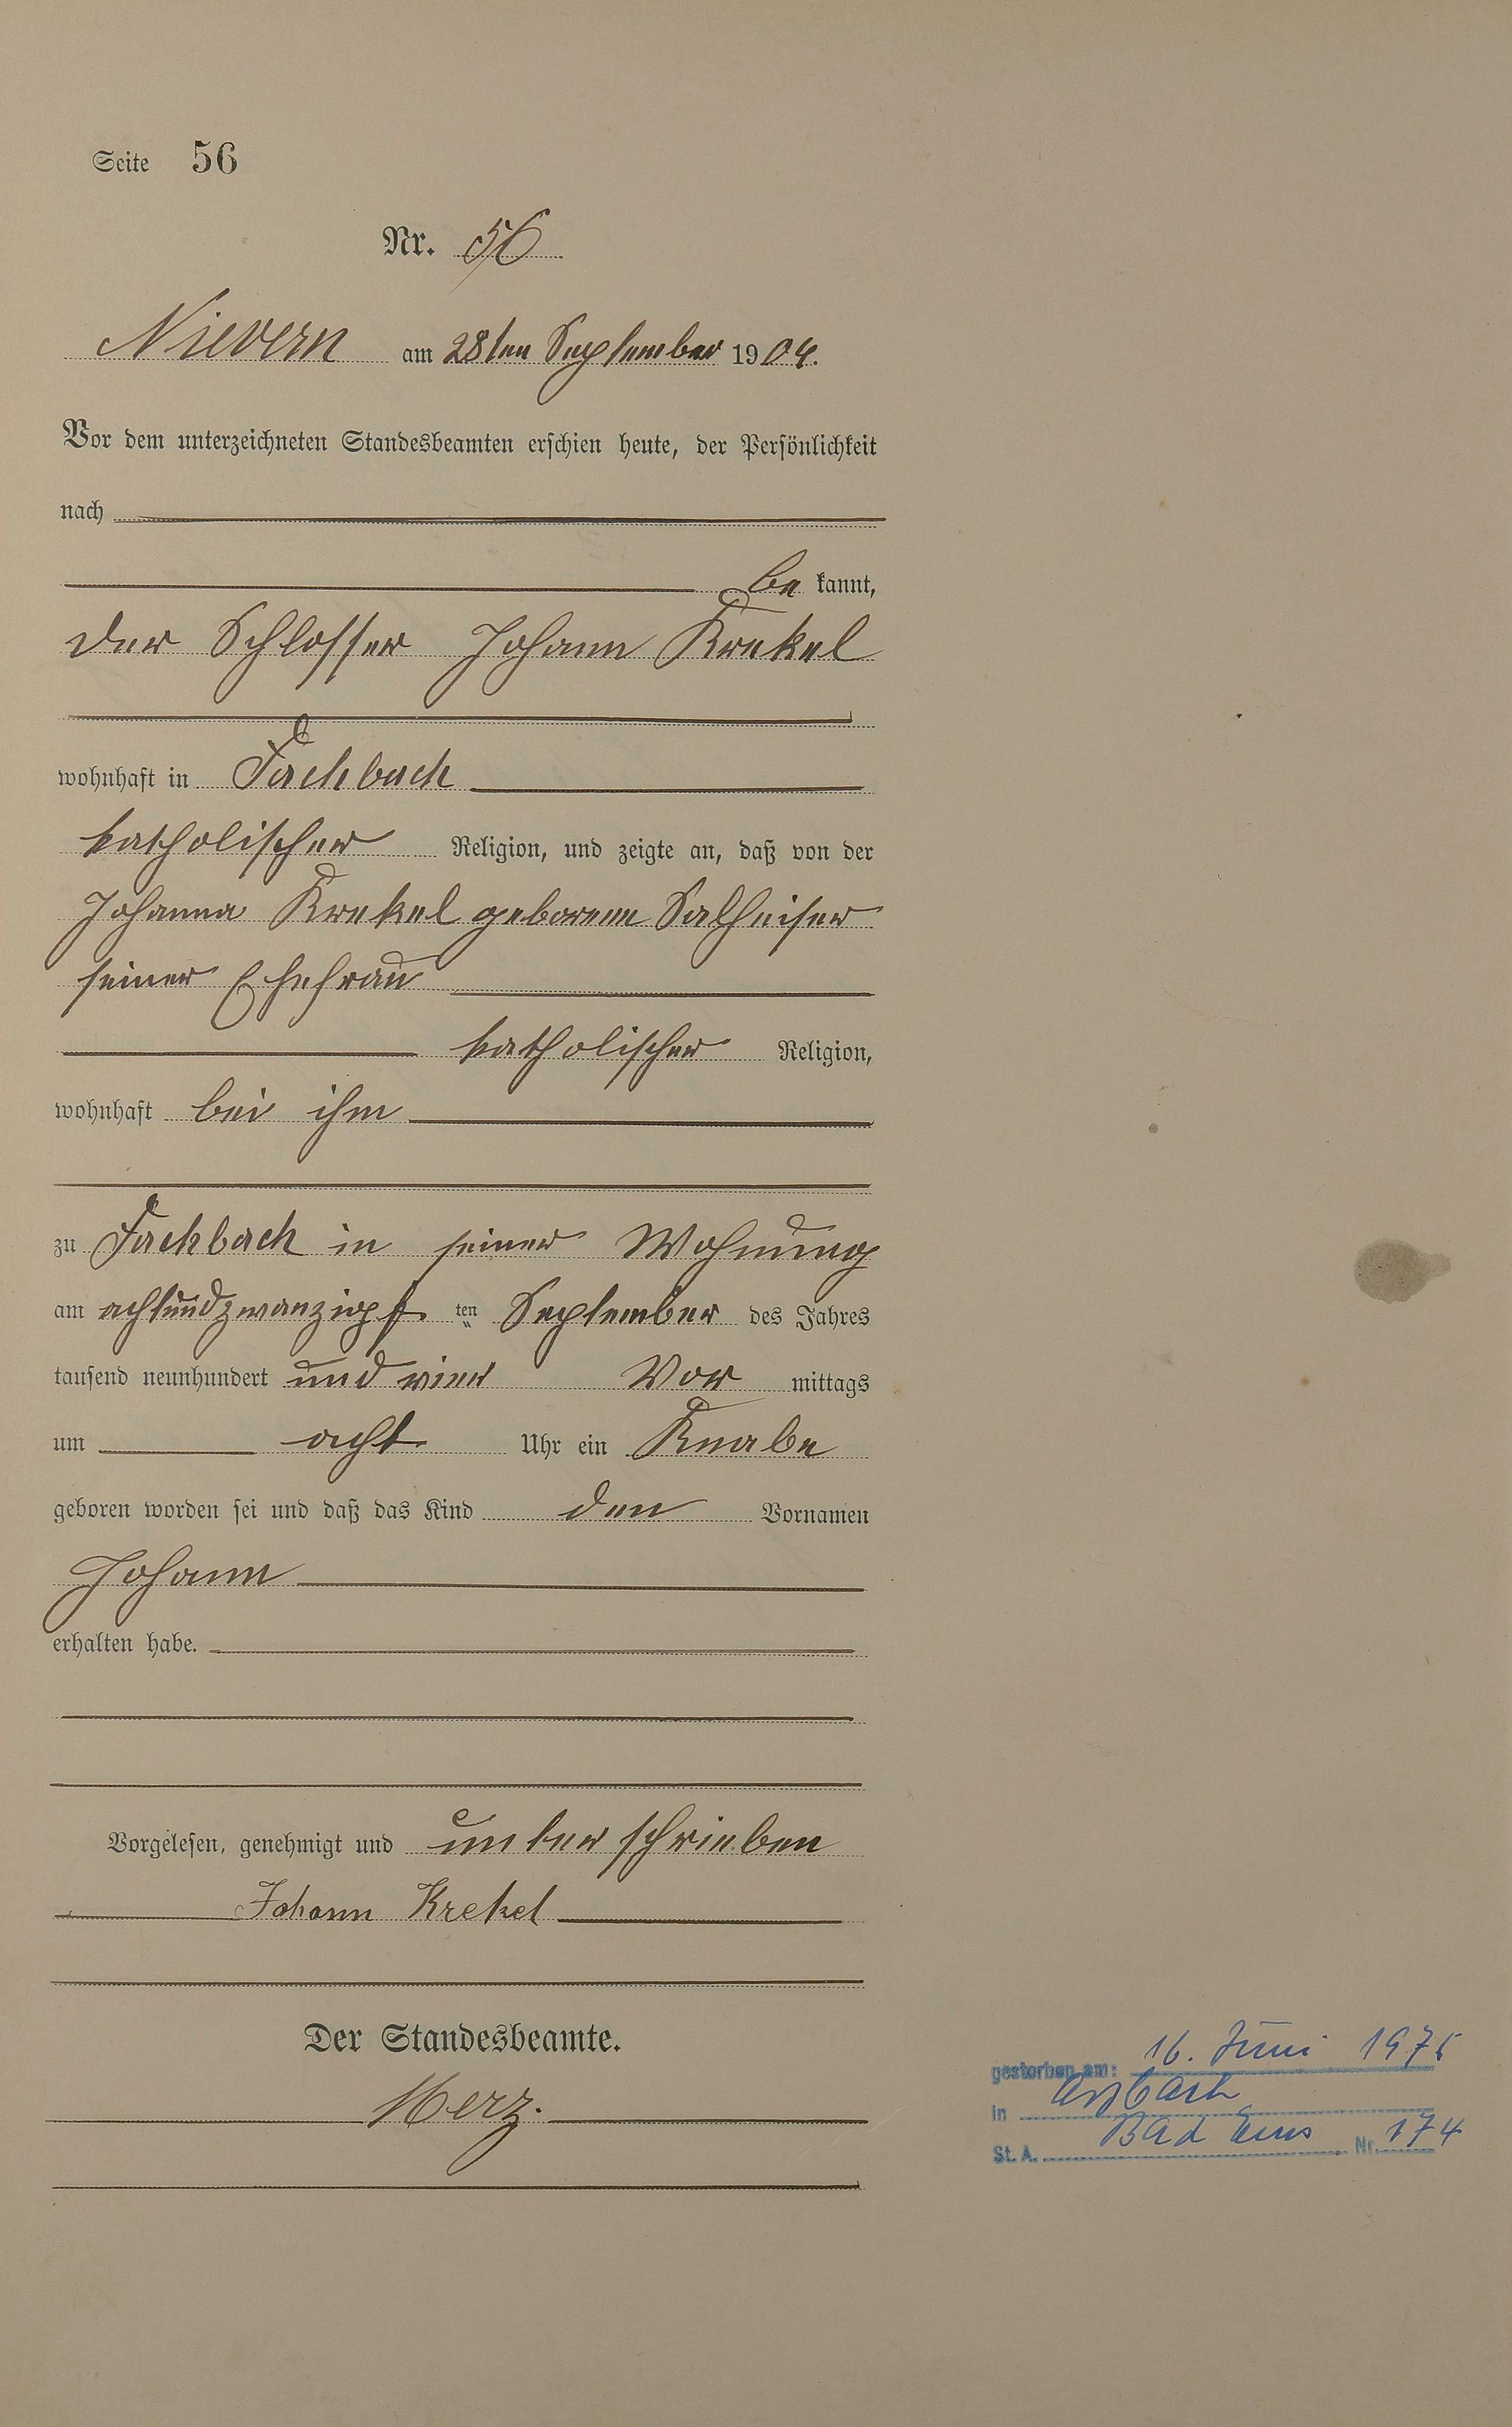 Seite 56
Nr. 56
Nievern am 28ten September 1904.
Vor dem unterzeichneten Standesbeamten erschien heute, der Persönlichkeit
nach
be kannt,
der Schlosser Johann Krekel
wohnhaft in Fachbach
katholischer Religion, und zeigte an, daß von der
Johanna Krekel geborenen Salheiser
seiner Ehefrau
katholischer Religion,
wohnhaft bei ihm
zu Fachbach in seiner Wohnung
am achtundzwanzigst ten September des Jahres
tausend neunhundert und vier Vor mittags
um acht Uhr ein Knabe
geboren worden sei und daß das Kind den Vornamen
Johann
erhalten habe.
Vorgelesen, genehmigt und unterschrieben
Johann Krekel
Der Standesbeamte.
Merz.
gestorben am: 16. Juni
in Arzbach
St. A. Bad Ems Nr. 174